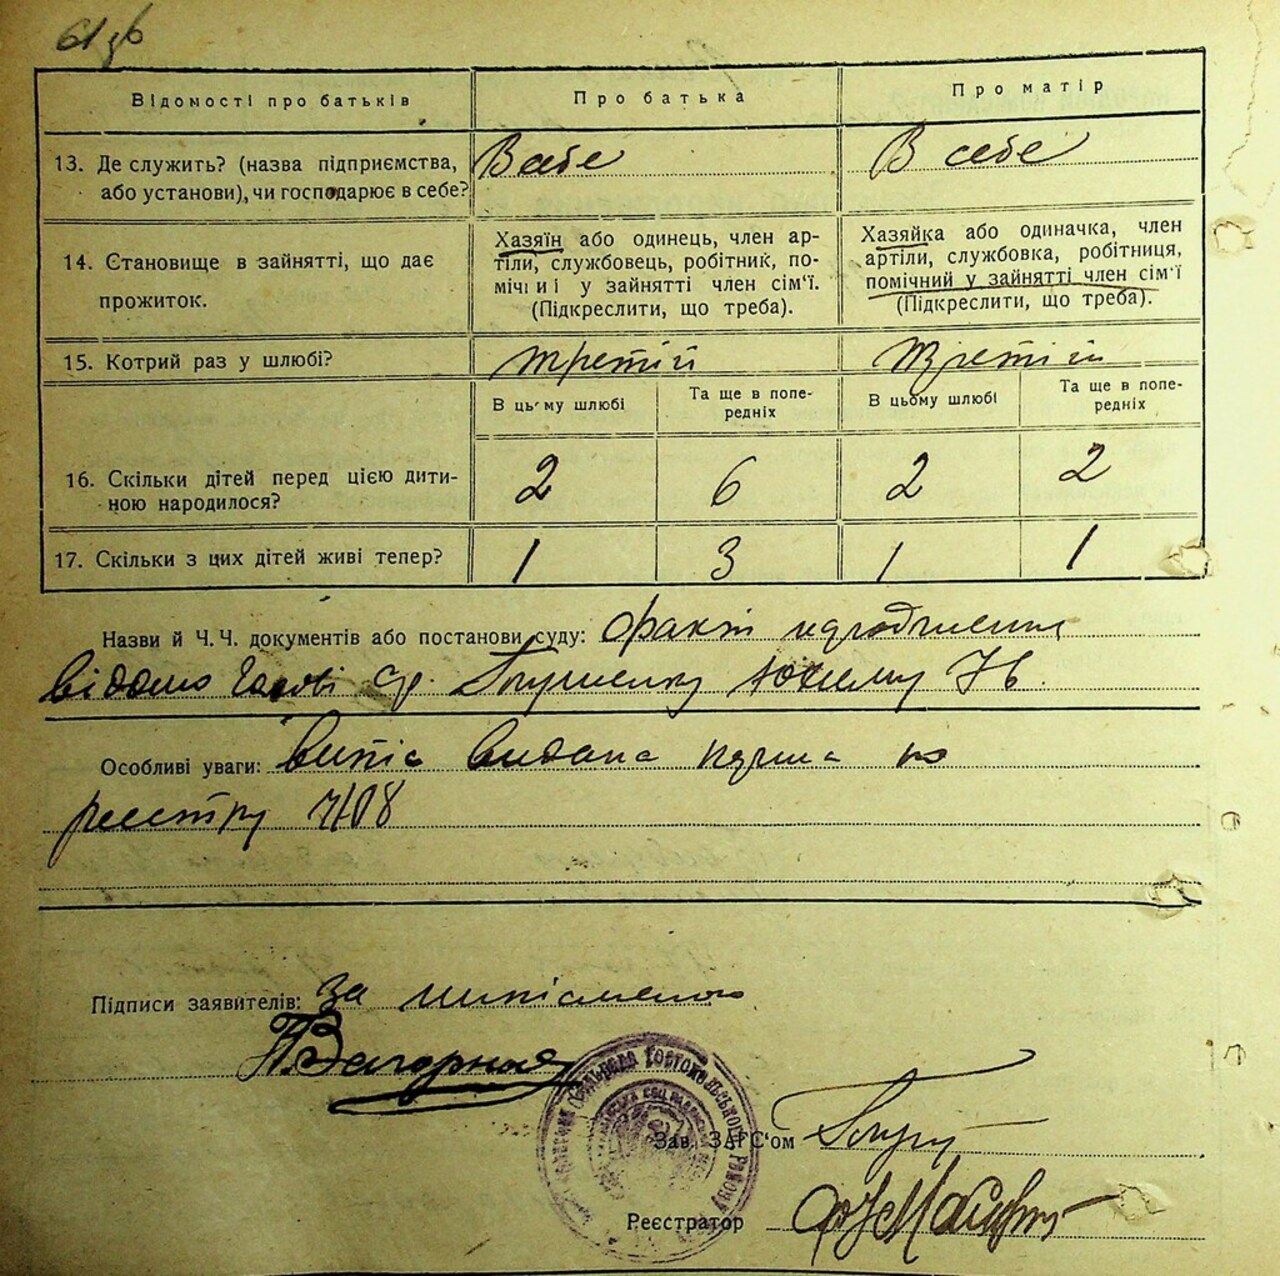 61 зв
Відомості про батьків
Про батька
Про матір
13. Де служить? (назва підприємства,
або установи), чи господарює в себе?
В себе
В себе
14. Становище в зайнятті, що дає
прожиток.
Хазяїн або одинець, член ар-
тіли, службовець, робітник, по-
мічний у зайнятті член сім'ї.
(Підкреслити, що треба).
Хазяйка або одиначка, член
артіли, службовка, робітниця,
помічний у зайнятті член сім'ї
(Підкреслити, що треба).
15. Котрий раз у шлюбі?
третій
третій
В цьому шлюбі
Та ще в попе-
редніх
В цьому шлюбі
Та ще в попе-
редніх
16. Скільки дітей перед цією дити-
ною народилося?
2
6
2
2
17. Скільки з цих дітей живі тепер?
1
3
1
1
Назви й Ч.Ч. документів або постанови суду: факт народження
відомо Голові с/р.
Особливі уваги: витіс видана перша по
реєстру №108
Підписи заявителів: За
Загорная
Зав. ЗАГС'ом
Реєстратор